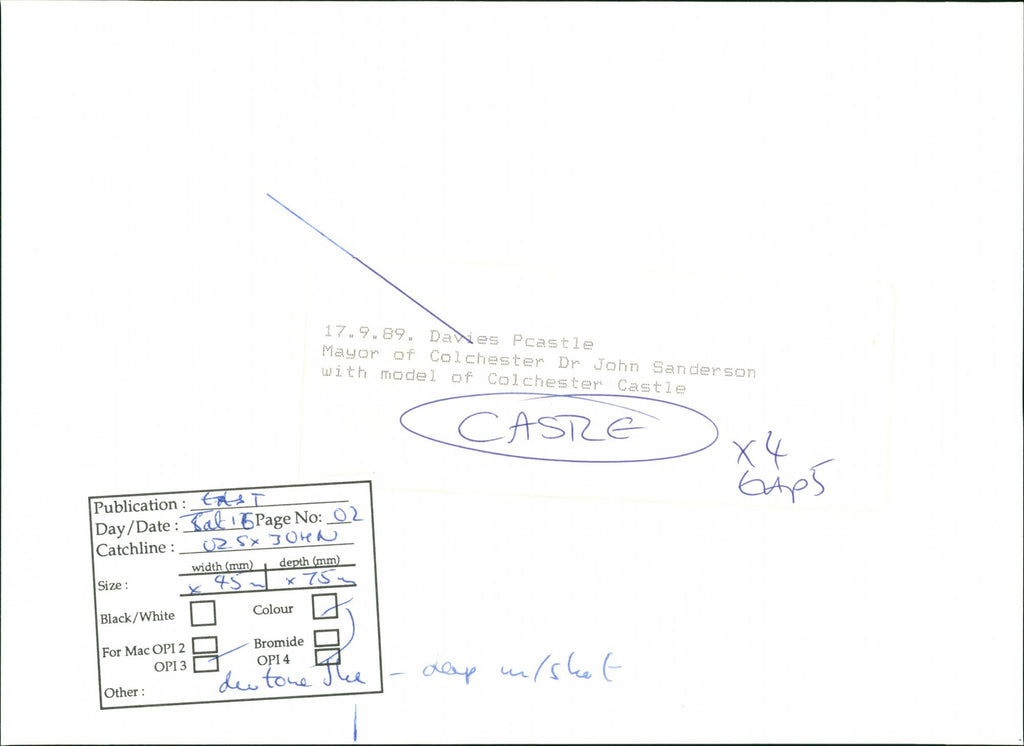 17.9.89. Davies Pcastle
Mayor of Colchester Dr John Sanderson
with model of Colchester Castle
CASTLE
x4
Publication : EAST
Day/Date : Sat 16 Page No: 02
Catchline :
width (mm) depth (mm)
Size : x 45 x 75
Black/White Colour
For Mac OPI 2 Bromide
OPI 3 OPI 4
Other :